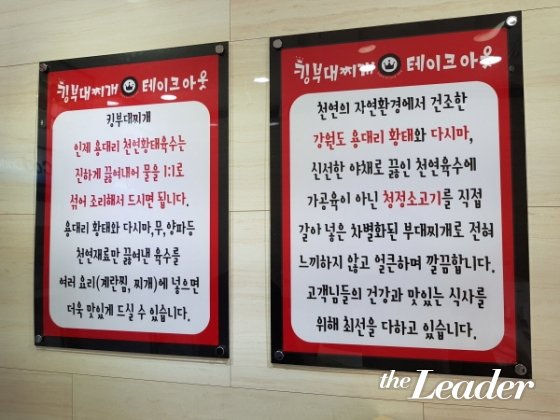 킹부대찌개 테이크아웃
킹부대찌개
인제 용대리 천연황태육수는
진하게 끓여내어 물을 1:1로
섞어 조리해서 드시면 됩니다.
용대리 황태와 다시마,무,양파등
천연재료만 끓여낸 육수를
여러 요리(계란찜, 찌개)에 넣으면
더욱 맛있게 드실 수 있습니다.
킹부대찌개 테이크아웃
천연의 자연환경에서 건조한
강원도 용대리 황태와 다시마,
신선한 야채로 끓인 천연육수에
가공육이 아닌 청정소고기를 직접
갈아 넣은 차별화된 부대찌개로 전혀
느끼하지 않고 얼큰하며 깔끔합니다.
고객님들의 건강과 맛있는 식사를
위해 최선을 다하고 있습니다.
the Leader